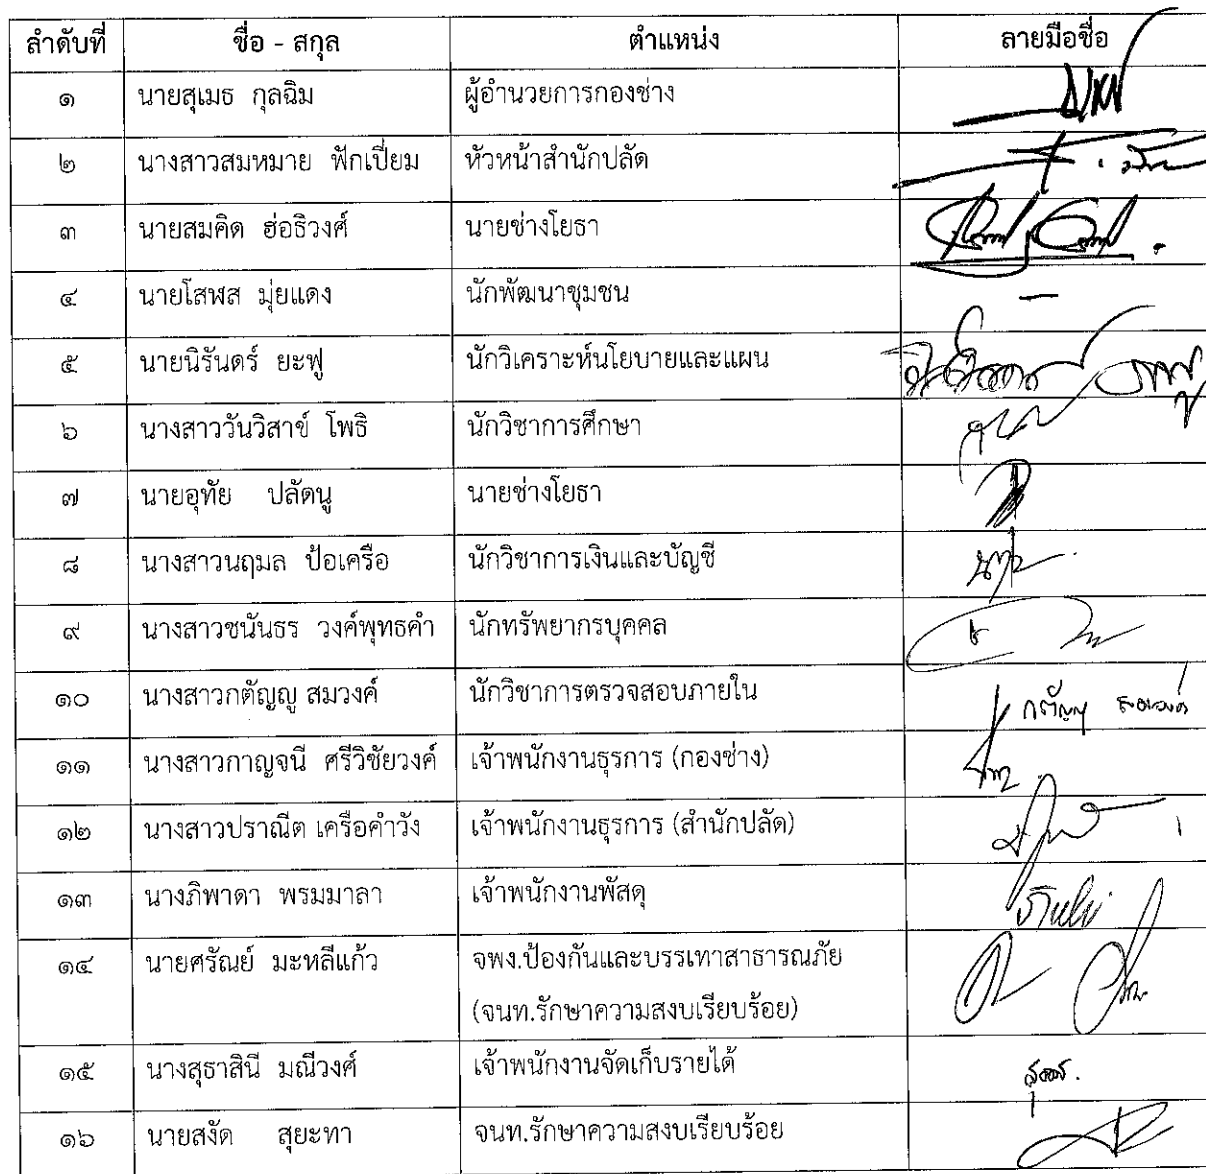 ลำดับที่ ชื่อ - สกุล ตำแหน่ง ลายมือชื่อ
๑ นายสุเมธ กุลฉิม ผู้อำนวยการกองช่าง
๒ นางสาวสมหมาย ฟักเปี่ยม หัวหน้าสำนักปลัด
๓ นายสมคิด ฮ่อธิวงศ์ นายช่างโยธา
๔ นายโสฬส มุ่ยแดง นักพัฒนาชุมชน –
๕ นายนิรันดร์ ยะฟู นักวิเคราะห์นโยบายและแผน
๖ นางสาววันวิสาข์ โพธิ นักวิชาการศึกษา
๗ นายอุทัย ปลัดนู นายช่างโยธา
๘ นางสาวนฤมล ป้อเครือ นักวิชาการเงินและบัญชี
๙ นางสาวชนันธร วงค์พุทธคำ นักทรัพยากรบุคคล
๑๐ นางสาวกตัญญู สมวงค์ นักวิชาการตรวจสอบภายใน กตัญญู สมวงค์
๑๑ นางสาวกาญจนี ศรีวิชัยวงค์ เจ้าพนักงานธุรการ (กองช่าง)
๑๒ นางสาวปราณีต เครือคำวัง เจ้าพนักงานธุรการ (สำนักปลัด)
๑๓ นางภิพาดา พรมมาลา เจ้าพนักงานพัสดุ
๑๔ นายศรัณย์ มะหลีแก้ว จพง.ป้องกันและบรรเทาสาธารณภัย
(จนท.รักษาความสงบเรียบร้อย)
๑๕ นางสุธาสินี มณีวงศ์ เจ้าพนักงานจัดเก็บรายได้
๑๖ นายสงัด สุยะทา จนท.รักษาความสงบเรียบร้อย